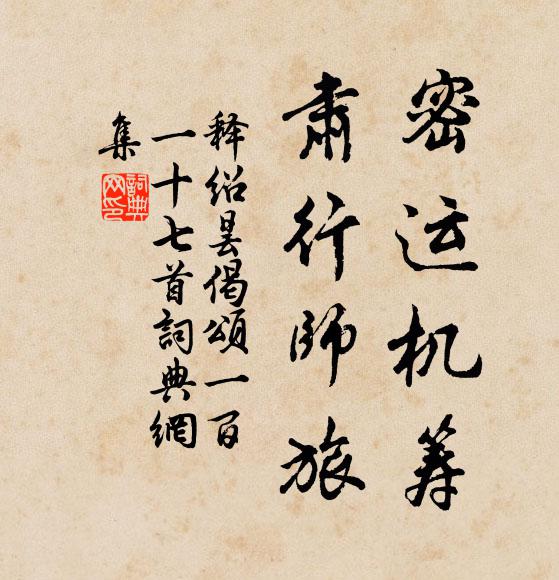 密运机筹
肃行师旅
释绍昙偈颂一百
一十七首詞典網
集
詞典
网印